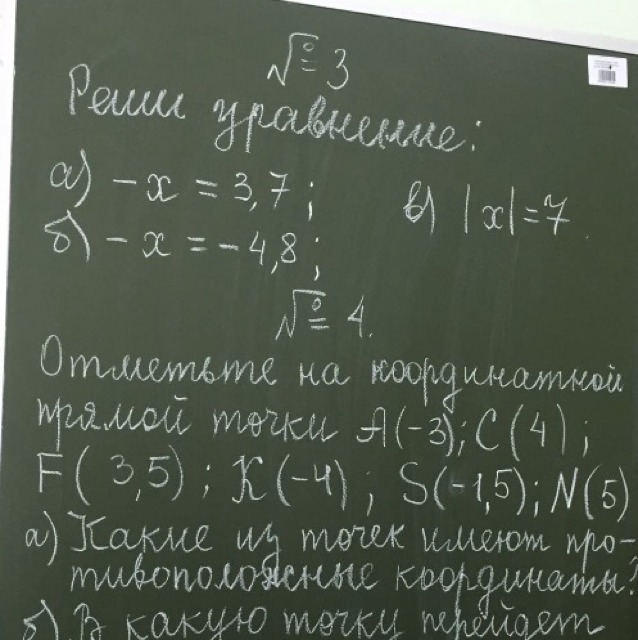 № 3
Реши уравнение:
а) - x = 3,7 ; в) |x| = 7.
б) - x = - 4,8 ;
№ 4.
Отметьте на координатной
прямой точки A(-3); C(4) ;
F( 3,5) ; K(-4) ; S(-1,5); N(5)
а) Какие из точек имеют про-
тивоположные координаты?
б) В какую точку перейдет